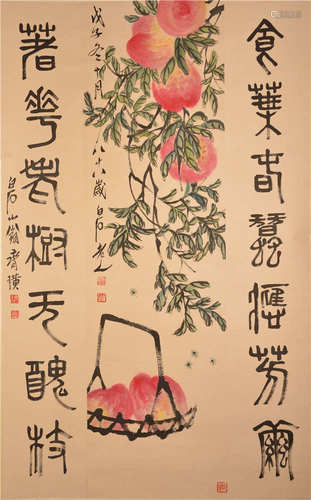 食葉春蠶應芳
戊子冬十月
八十八歲白石老人
著花老樹无醜枝
白石山翁齊璜